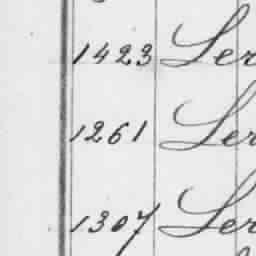 1423 Ser
1261 Ser
1307 Ser